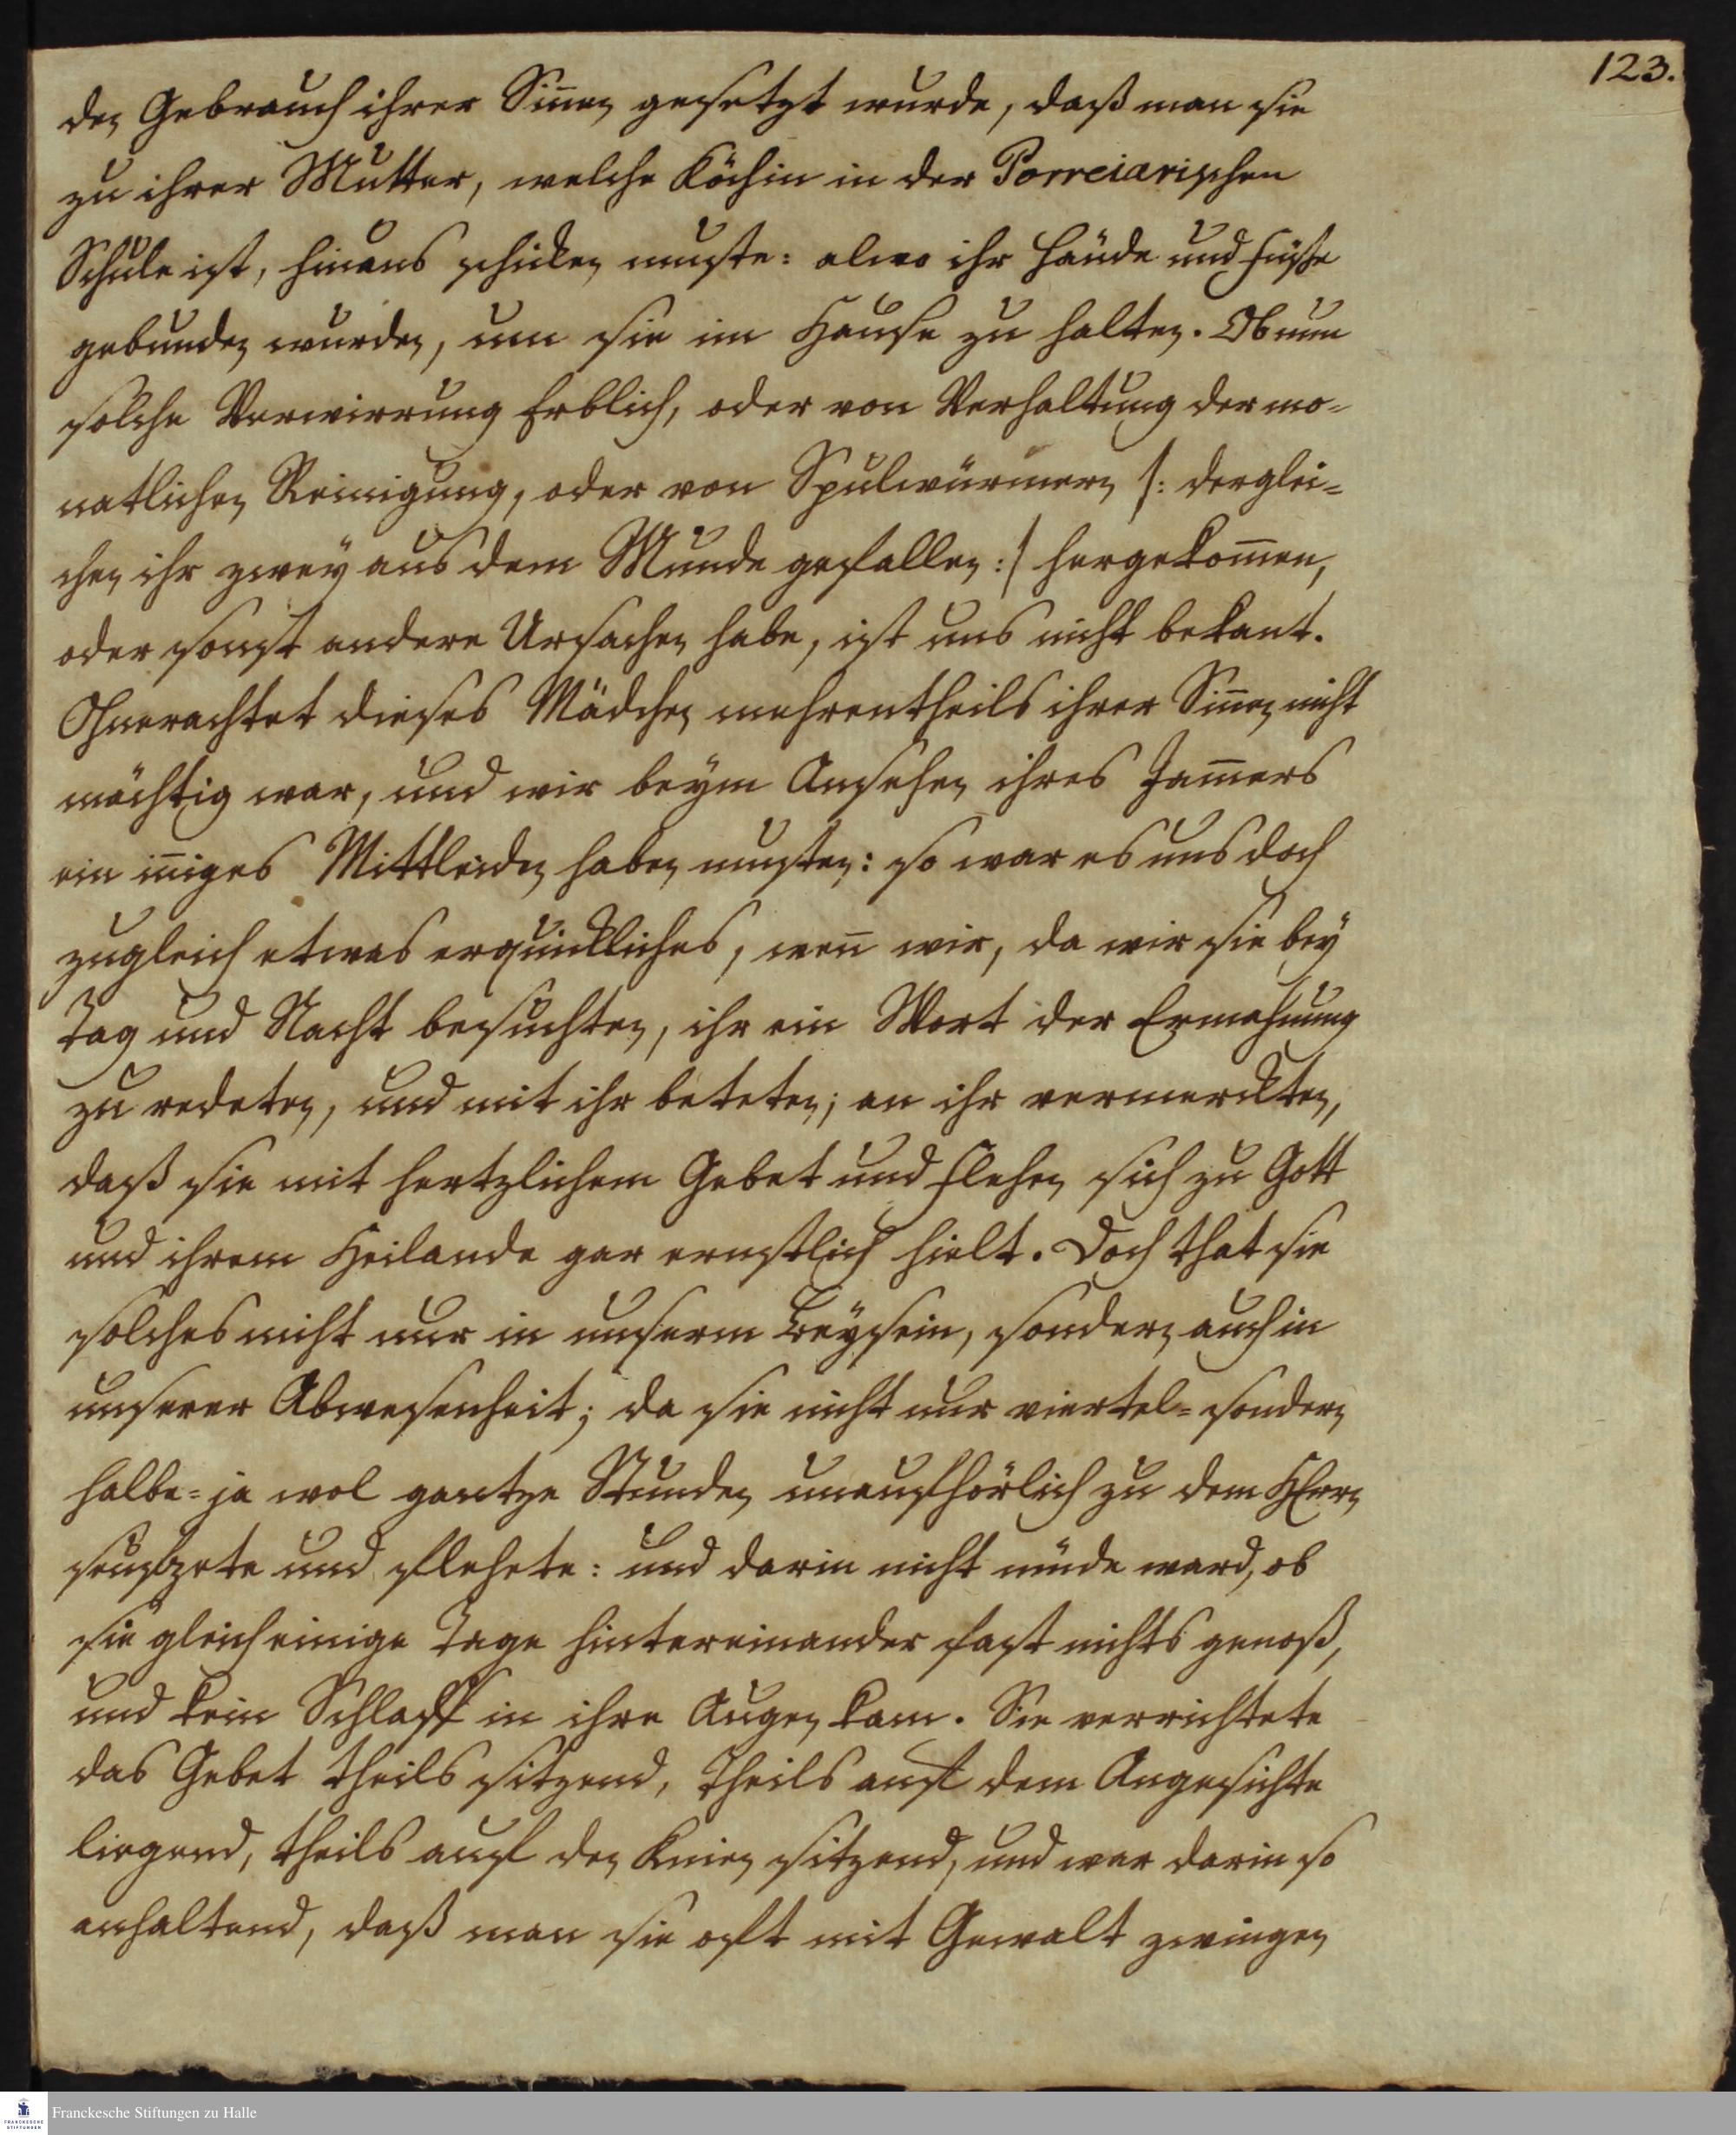 123.
den Gebrauch ihrer Sin̄en gesetzt wurde, daß man sie
zu ihrer Mutter, welche Köchin in der Porreiarischen
Schule ist, hinaus schicken muste: alwo ihr Hände und Füße
gebunden wurden, um sie im Hause zu halten. Ob nun
solche Verwirrung Erblich, oder von Verhaltung der mo-
natlichen Reinigung, oder von Spulwürmern /: derglei-
chen ihr zwey aus dem Munde gefallen :/ hergekom̄en,
oder sonst andere Ursachen habe, ist uns nicht bekant.
Ohnerachtet dieses Mädchen mehrentheils ihrer Sin̄en nicht
mächtig war, und wir beym Ansehen ihres Jam̄ers
ein in̄iges Mittleiden haben musten: so war es uns doch
zugleich etwas erquickliches, wen̄ wir, da wir sie bey
Tag und Nacht besuchten, ihr ein Wort der Ermahnung
zu redeten, und mit ihr beteten; an ihr vermerckten,
daß sie mit hertzlichem Gebet und Flehen sich zu Gott
und ihrem Heilande gar ernstlich hielt. Doch that sie
solches nicht nur in unserm Beyseyn, sondern auch in
unserer Abwesenheit; da sie nicht nur viertel- sondern
halbe- ja wol gantze Stunden unaufhörlich zu dem HErrn
seufzete und flehete: und darin nicht müde ward, ob
sie gleich einige Tage hintereinander fast nichts genoß,
und kein Schlaff in ihre Augen kam. Sie verrichtete
das Gebet theils sitzend, theils auf dem Angesichte
liegend, theils auf den Knien sitzend, und war darin so
anhaltend, daß man sie oft mit Gewalt zwingen
Franckesche Stiftungen zu Halle
FRANCKESCHE
STIFTUNGEN